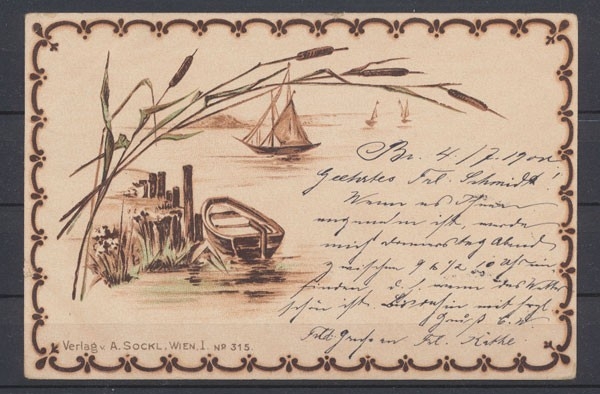 Br. 4./7. 1900
Geehrtes Frl. Schmidt!
Wenn es Ihnen
angenehm ist, werde
mich donnerstag Abend
zwischen 9 & 1/2 10 Uhr ein
finden d. h. wenn das Wetter
schön ist. mit frdl.
Gruß
Frl. Käthe.
Verlag v. A. SOCKL, WIEN, I. No 315.